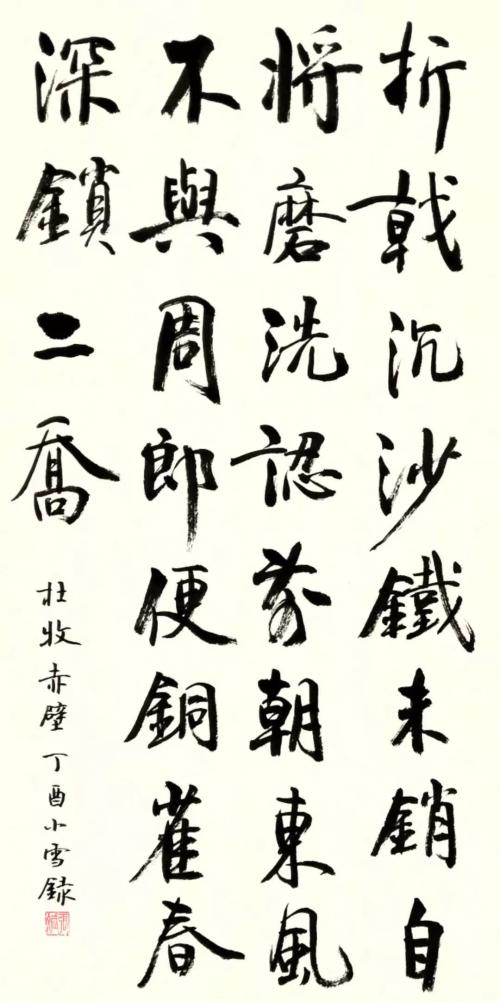 折戟沉沙鐵未銷自
將磨洗認前朝東風
不與周郎便銅雀春
深鎖二喬
杜牧赤壁丁酉小雪録